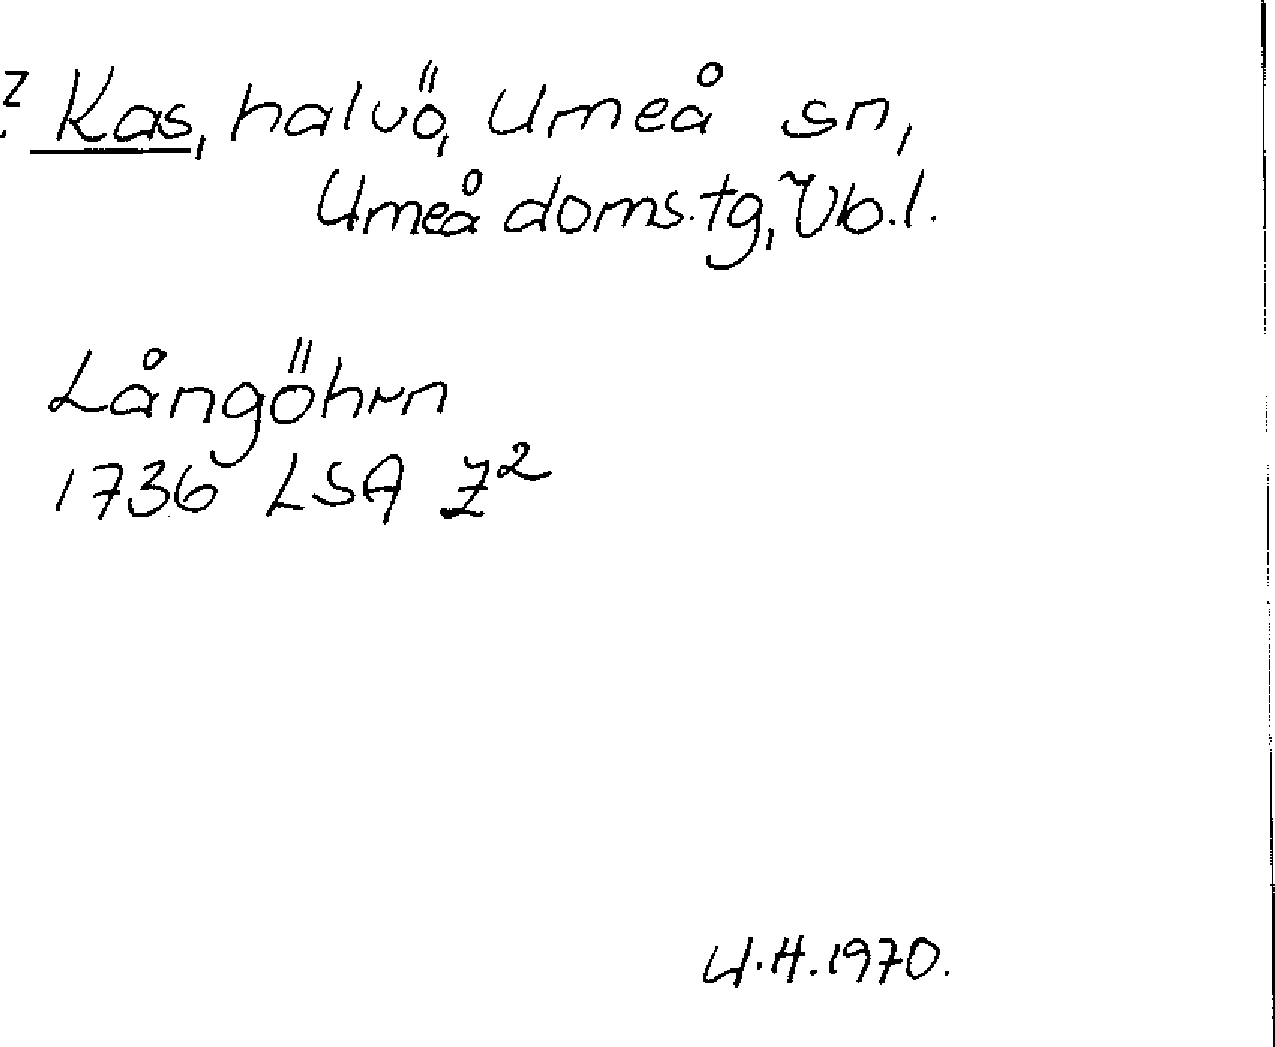 ? Kas, halvö, Umeå sn,
Umeå doms.tg, Vb.l.
Långöhrn
1736 LSA Z²
U.H.1970.